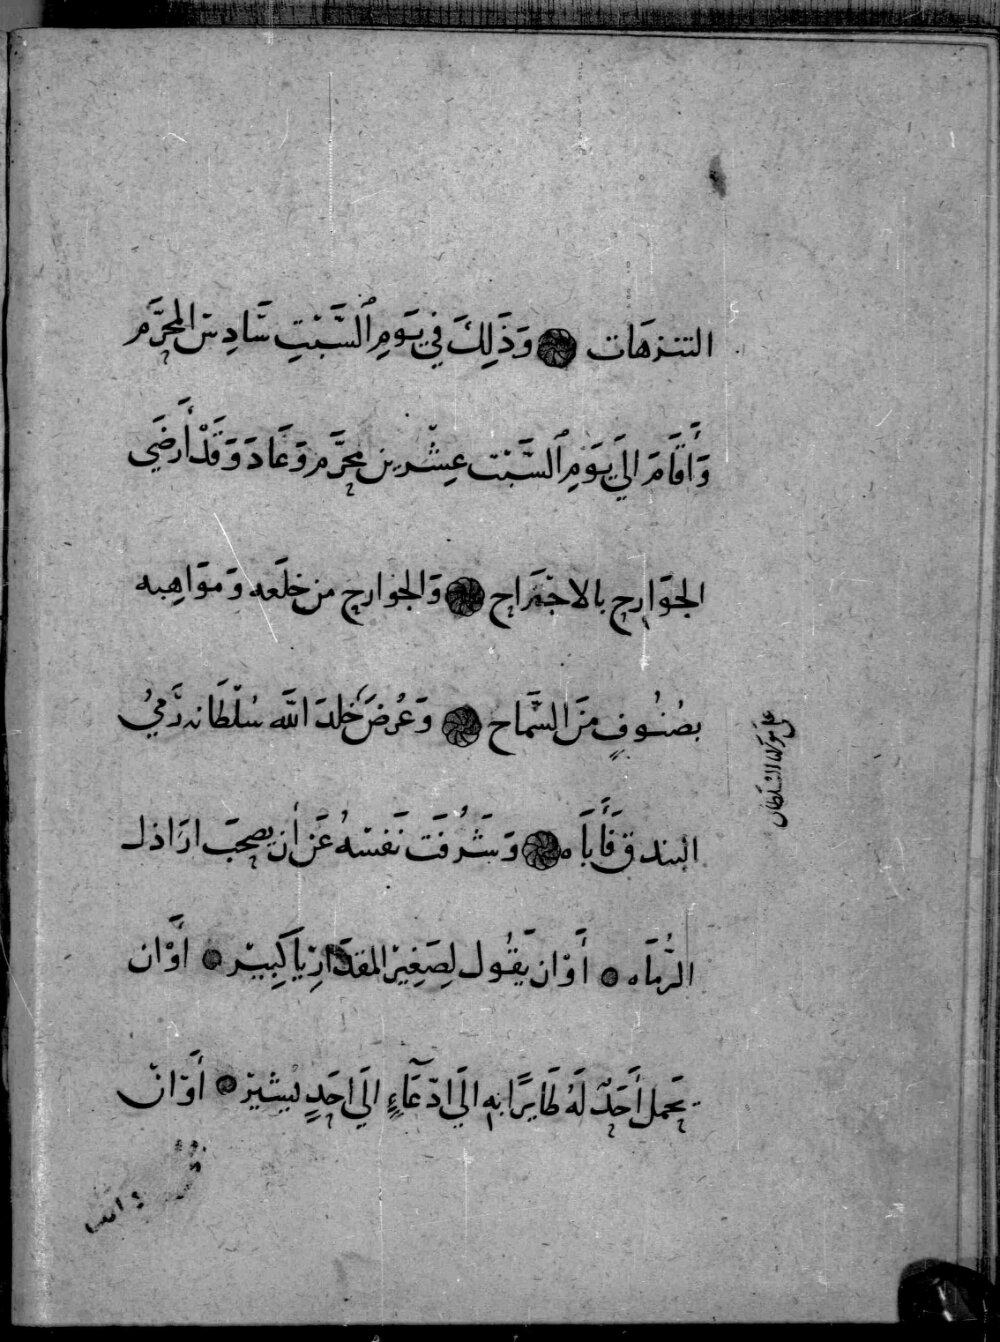 التنزهات ۞ وَذَلِكَ في يَومِ ٱلسَّبْتِ سَادِس المحرَّم
وَأَقَامَ الَي يَوَمِ ٱلسَّبْت عِشْرين محرَّم وَعَادَ وَقَدْ أَرضَي
الجوَارح بالاجْتِرَاح ۞ وَالجوارح من خلَعه وَموَاهِبه
بصُنُوفٍ منَ السَّمَاح ۞ وَعُرضَ خلدَ اللَّه سُلْطَانه رَميُ
البندق فَأَبَاه ۞ وَشَرُفَت نَفسُهُ عَن أن يصحَبَ ارَاذل
الرُّمَاه ۞ أَوْ ان يَقُول لِصَغِير المقدَار يَا كَبِيْر ۞ أَوْ ان
يَحمل أَحَدٌ لَهُ طَايرًا به الَي ادّعَآءٍ الَي احَدٍ يُشيْر ۞ أَوْ انْ